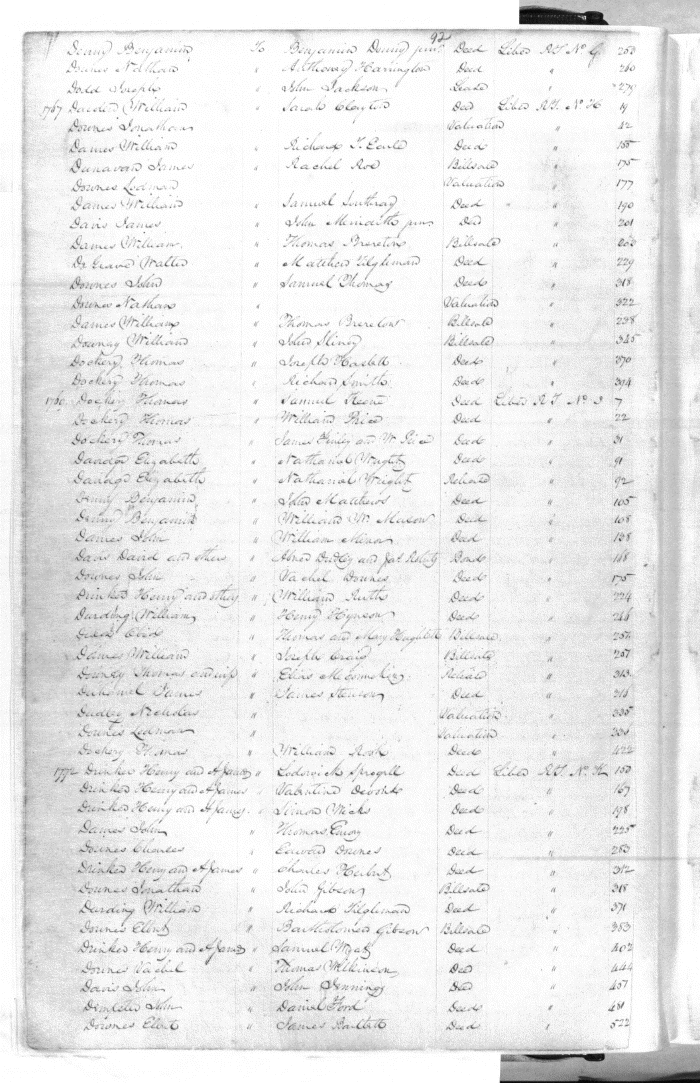 92
Denny Benjamin To Benjamin Denny junr Deed Liber RT No G 253
Downes Nathan " Anthony Harrington Deed " 260
Dodd Joseph " John Jackson Lease " 279
1767 Darden William " Sarah Clayton Deed Liber RT No H 19
Downes Jonathan Valuation " 42
Dames William " Richard T. Earle Deed " 155
Dunavan James " Rachel Roe Billsale " 175
Downes Lodman Valuation " 177
Dames William " Samuel Southray Deed " " 190
Davis James " John Meridith junr Deed " 201
Dames William " Thomas Brereton Billsale "
De Grave Walter " Matthew Tilghman Deed " 229
Downes John " Samuel Thomas Deed " 318
Downes Nathan " Valuation " 322
Dames William " Thomas Brereton Billsale " 238
Downey William " John Billsale " 345
Dockery Thomas " Joseph Deed " 370
Dockery Thomas " Richard Smith Deed " 394
Dockery Thomas " Samuel Keene Deed Liber RT No I 7
Dockery Thomas " William Price Deed " 22
Dockery Thomas " James Finley and W. Price Deed " 31
Elizabeth " Nathaniel Wright Deed " 91
Elizabeth " Nathaniel Wright Release " 92
Denny Benjamin " John Matthews Deed " 105
Denny Benjamin " William W. Mason Deed " 108
Dames John " William Deed " 138
Davis David and others " Abner Dudley and Jas. Bond " 148
Downes John " Vachel Downes Deed " 175
Drinker Henry and others " William Ruth Deed " 224
Durding William " Henry Hynson Deed " 244
" Thomas and Mary Billsale " 256
Dames William " Joseph Craig Billsale " 257
Downey Thomas and wife " Elias Release " 313
Duhamel James " James Deed " 315
Dudley Nicholas " Valuation " 335
Downes Lodman " Valuation " 338
Dockery Thomas " William Deed " 422
1772 Drinker Henry and A James " Lodowick Sprogell Deed Liber RT No K 150
Drinker Henry and A James " Valentine Deed " 167
Drinker Henry and A James " Simon Wicks Deed " 198
Dames John " Thomas Emory Deed " 225
Downes Charles " Edward Downes Deed " 283
Drinker Henry and A James " Charles Deed " 312
Downes Jonathan " John Gibson Billsale " 318
Durding William " Richard Tilghman Deed " 371
Downes Elent " Bartholomew Gibson Billsale " 383
Drinker Henry and A James " Samuel Deed " 402
Downes Vachel " Thomas Wilkinson Deed " 444
Davis John " John Jennings Deed " 457
John " Daniel Ford Deed " 481
Downes Elent " James Bartlett Deed " 522